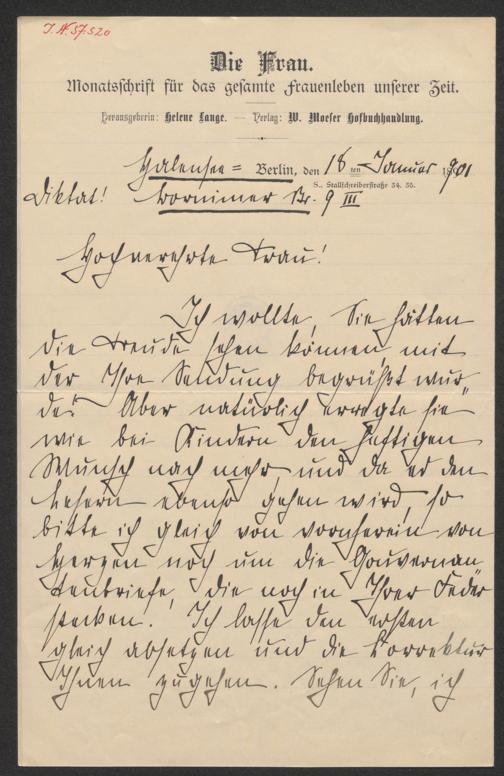 I.N. 57.520
Die Frau.
Monatsschrift für das gesamte Frauenleben unserer Zeit.
Herausgeberin: Helene Lange. — Verlag: W. Moeser Hofbuchhandlung.
Halensee = Berlin, den 18ten Januar 1901
S., Stallschreiberstraße 34. 35.
Diktat! Bornimer Str. 9 III
Hochverehrte Frau!
Ich wollte, Sie hätten
die Freude sehen können, mit
der Ihre Sendung begrüßt wur„
de! Aber natürlich erregte sie
wie bei Kindern den heftigen
Wunsch nach mehr, und da es den
Lesern ebenso gehen wird, so
bitte ich gleich von vornherein von
Herzen noch um die Gouvernan„
tenbriefe, die noch in Ihrer Feder
stecken. Ich lasse den ersten
gleich absetzen und die Korrektur
Ihnen zugehen. Sehen Sie, ich